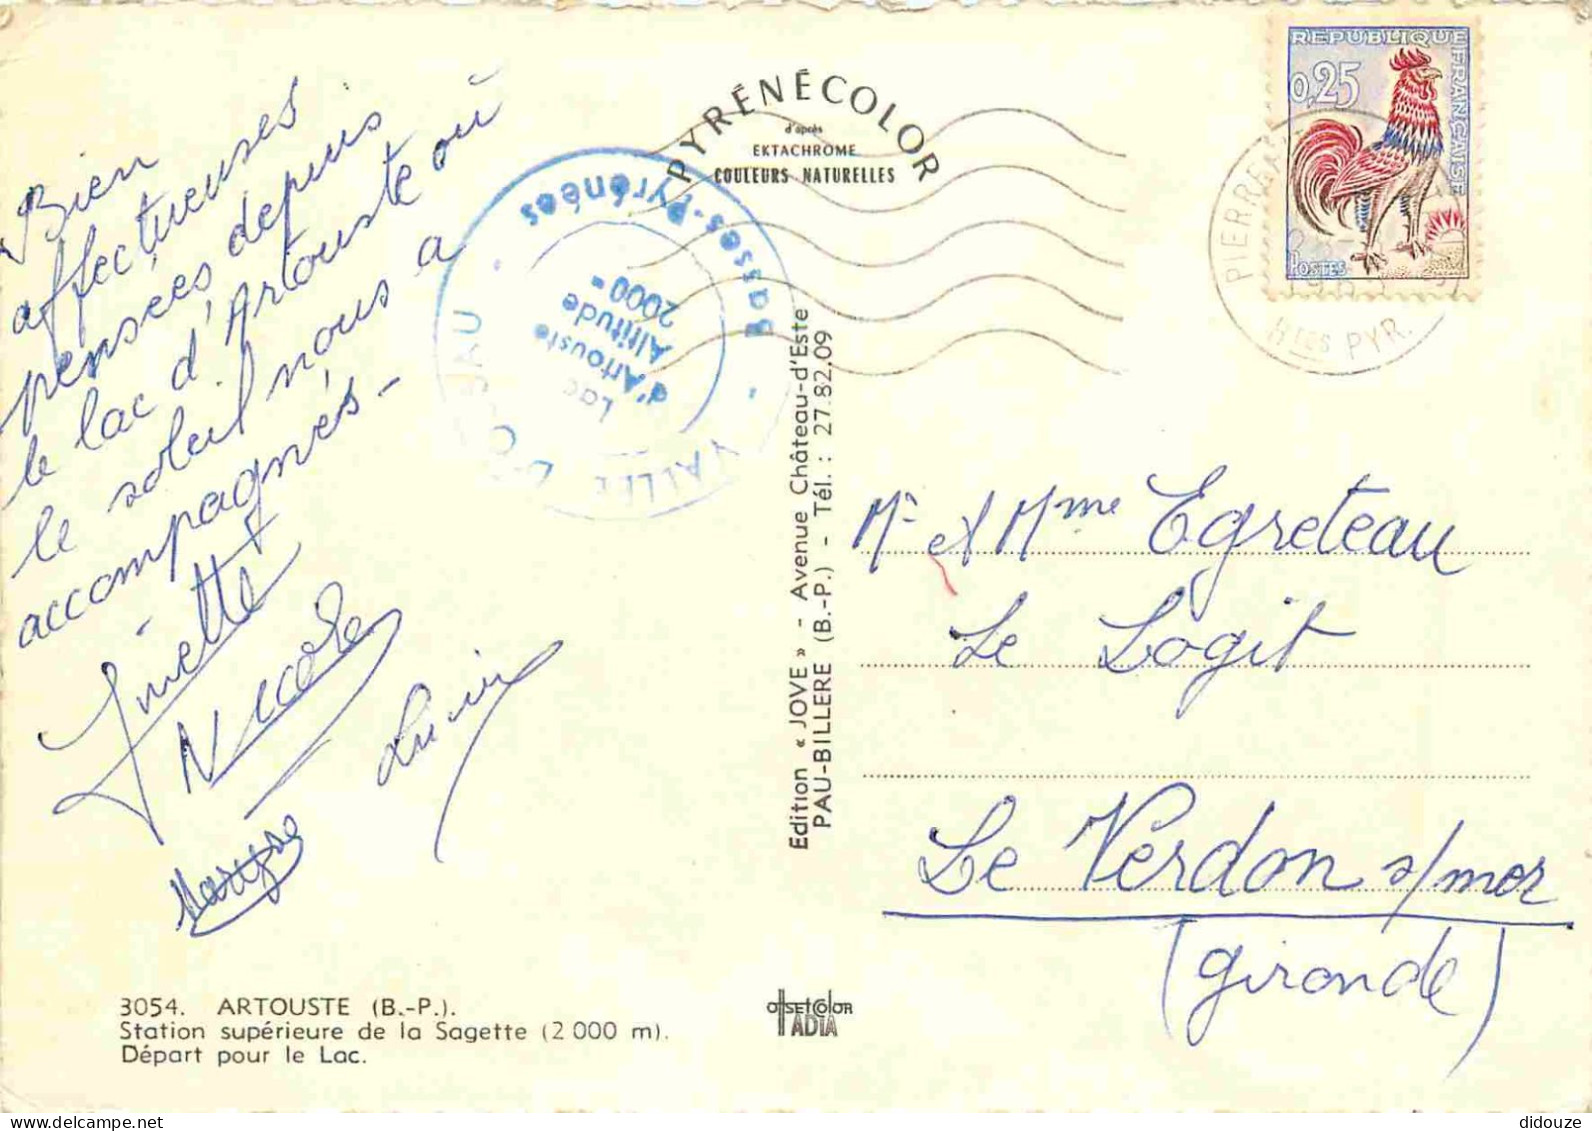 Bien
affectueuses
pensées depuis
le lac d'Artouste où
le soleil nous a
accompagnés -
Ginette
Nicole
Maryse
3054. ARTOUSTE (B.-P.).
Station supérieure de la Sagette (2 000 m).
Départ pour le Lac.
PYRÉNÉCOLOR
d'après
EKTACHROME
COULEURS NATURELLES
VALLÉE D'OSSAU
Basses-Pyrénées
Lac
d'Artouste
Altitude
2000 m
Edition « JOVE » - Avenue Château-d'Este
PAU-BILLERE (B.-P.) - Tél. : 27.82.09
OFFSETCOLOR
IADIA
REPUBLIQUE FRANÇAISE
0,25
POSTES
Htes PYR.
Mr et Mme Egreteau
Le Logit
Le Verdon s/mer
(gironde)
delcampe.net
didouze